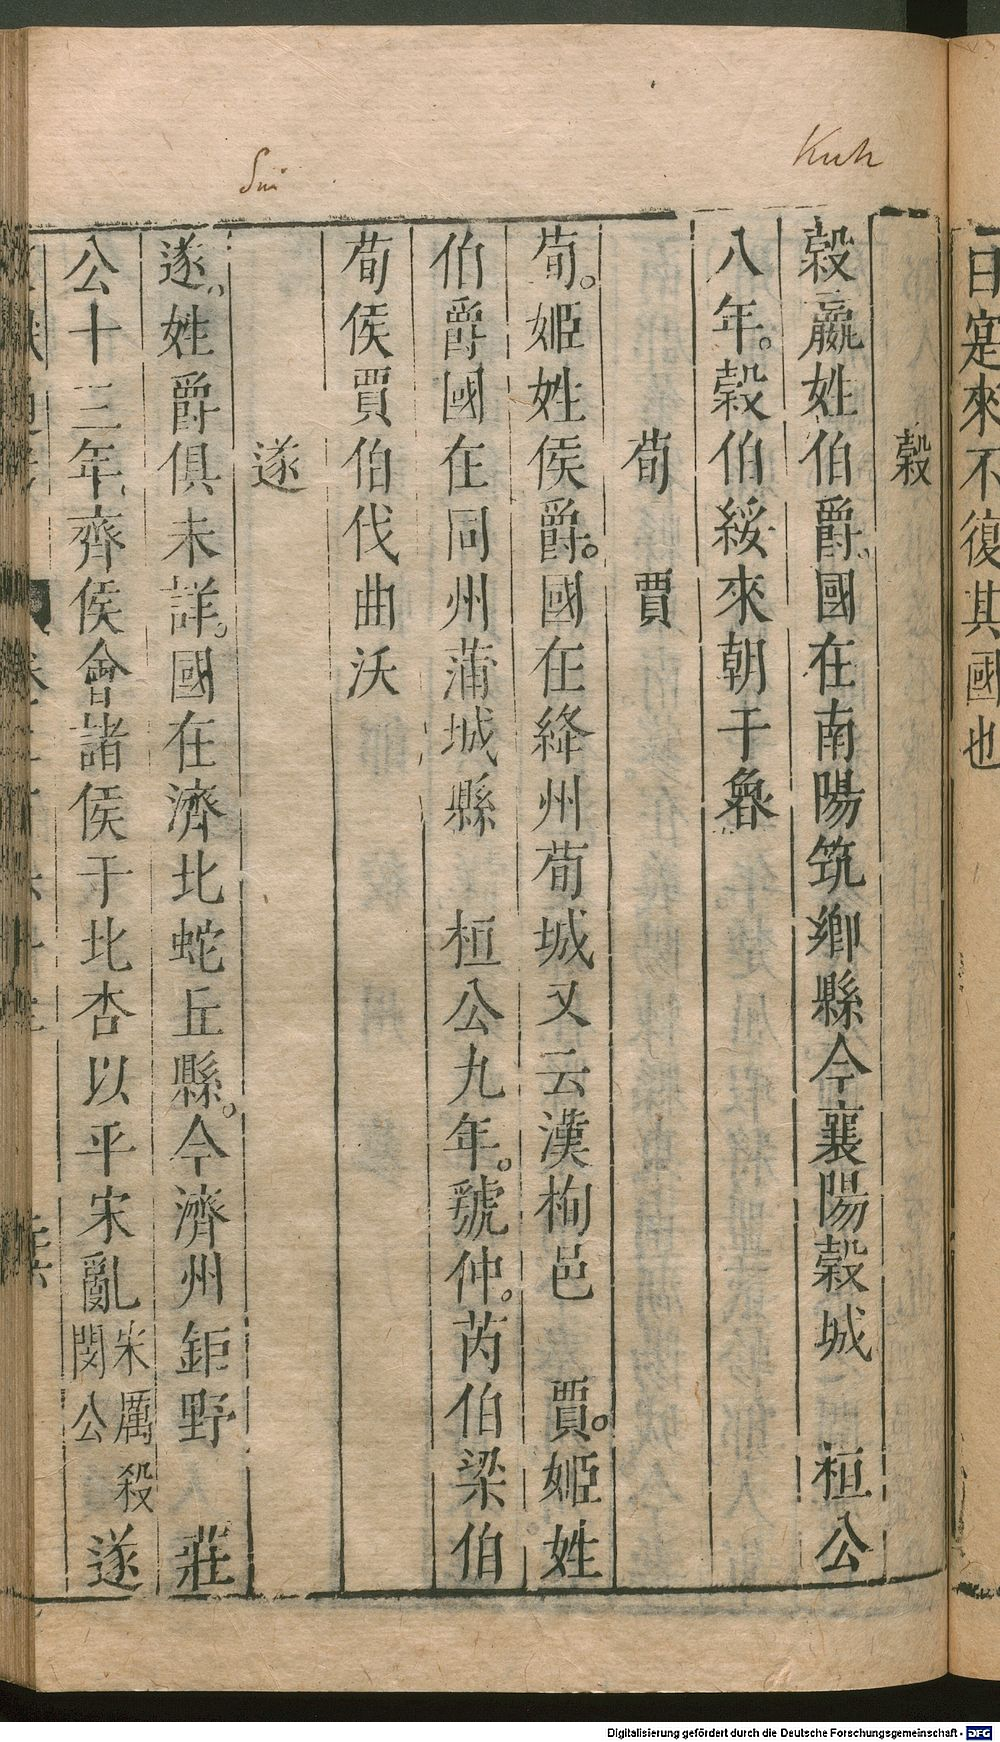 日寔來不復其國也
Kuh
Sui
穀
穀嬴姓伯爵國在南陽筑鄉縣今襄陽穀城　桓公
八年。穀伯綏來朝于魯
荀　賈
荀。姬姓侯爵。國在絳州荀城又云漢栒邑　賈。姬姓
伯爵國在同州蒲城縣　桓公九年。虢仲。芮伯梁伯
荀侯賈伯伐曲沃
遂
遂。姓爵俱未詳。國在濟北蛇丘縣。今濟州鉅野　莊
公十三年齊侯會諸侯于北杏以平宋亂宋厲殺閔公遂
Digitalisierung gefördert durch die Deutsche Forschungsgemeinschaft - DFG